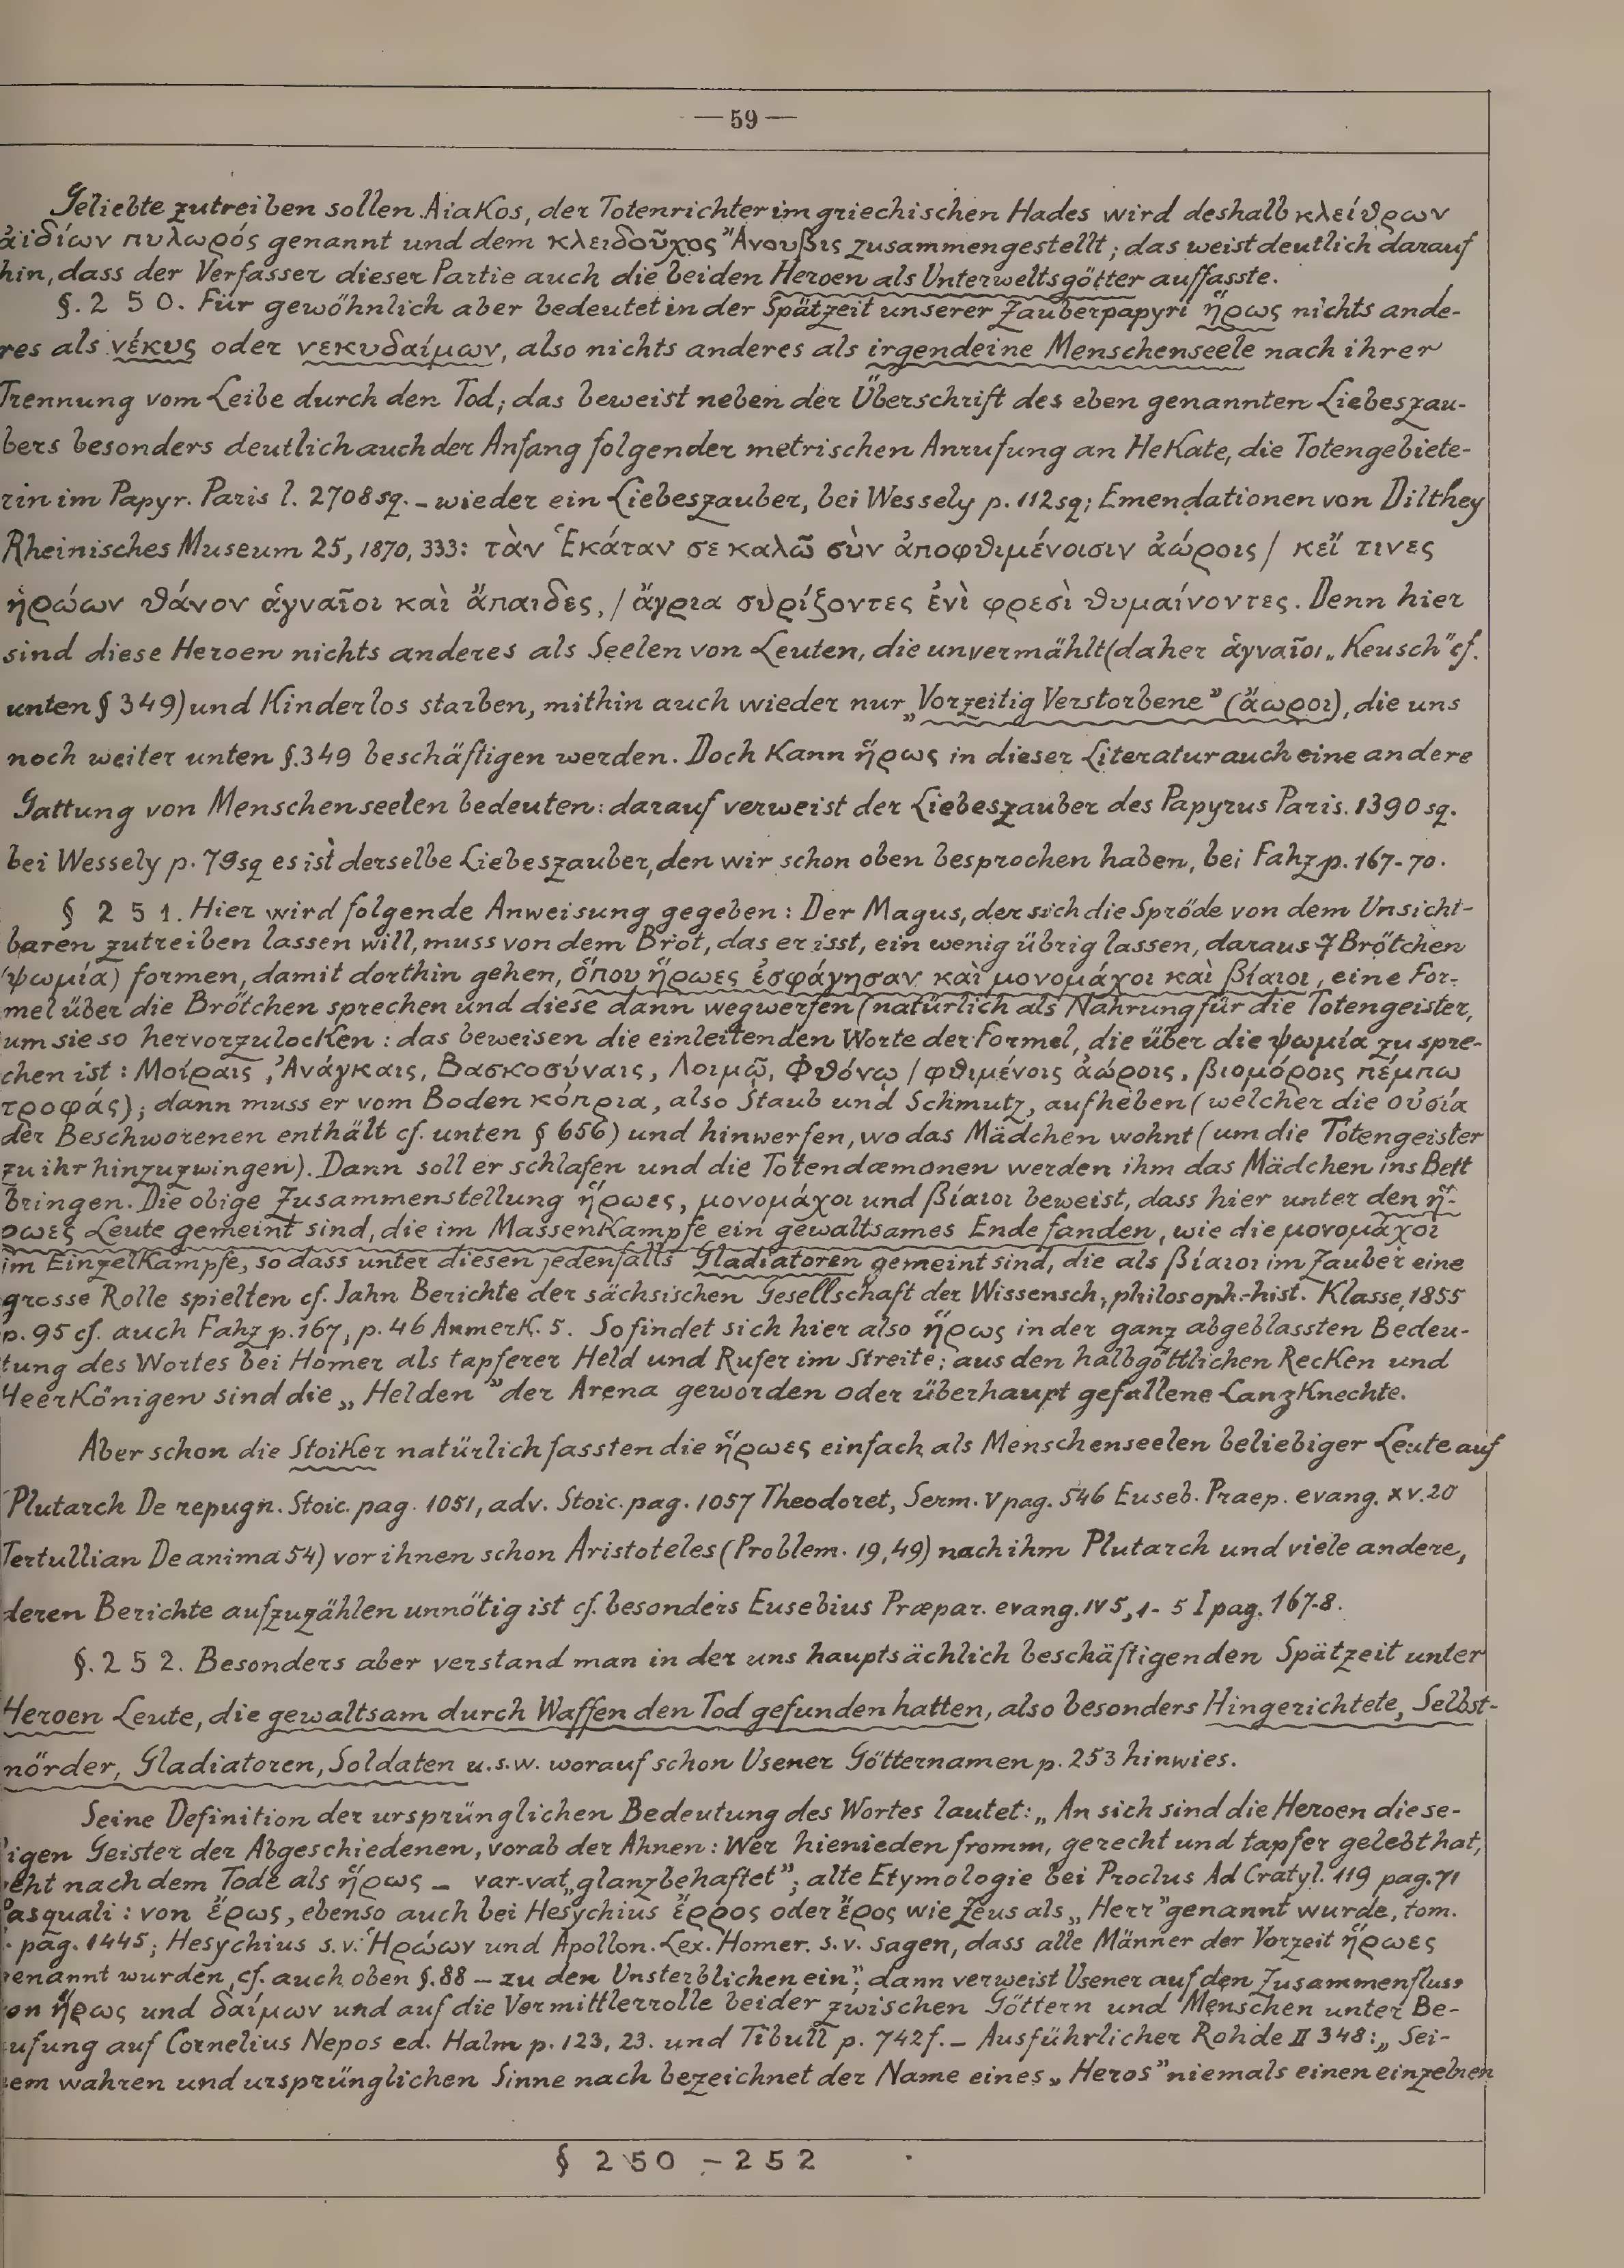 — 59 —
Geliebte zutreiben sollen. Aiakos, der Totenrichter im griechischen Hades wird deshalb κλείθρων
ἀϊδίων πυλωρός genannt und dem κλειδοῦχος Ἄνουβις zusammengestellt; das weist deutlich darauf
hin, dass der Verfasser dieser Partie auch die beiden Heroen als Unterweltsgötter auffasste.
§. 2 5 0. Für gewöhnlich aber bedeutet in der Spätzeit unserer Zauberpapyri ἥρως nichts ande-
res als νέκυς oder νεκυδαίμων, also nichts anderes als irgendeine Menschenseele nach ihrer
Trennung vom Leibe durch den Tod; das beweist neben der Überschrift des eben genannten Liebeszau-
bers besonders deutlich auch der Anfang folgender metrischen Anrufung an Hekate, die Totengebiete-
rin im Papyr. Paris l. 2708 sq. – wieder ein Liebeszauber, bei Wessely p. 112 sq; Emendationen von Dilthey
Rheinisches Museum 25, 1870, 333: τὰν Ἑκάταν σε καλῶ σὺν ἀποφθιμένοισιν ἀώροις / κεἴ τινες
ἡρώων θάνον ἁγναῖοι καὶ ἄπαιδες, / ἄγρια συρίζοντες ἐνὶ φρεσὶ θυμαίνοντες. Denn hier
sind diese Heroen nichts anderes als Seelen von Leuten, die unvermählt (daher ἁγναῖοι „Keusch" cf.
unten § 349) und Kinderlos starben, mithin auch wieder nur „Vorzeitig Verstorbene" (ἄωροι), die uns
noch weiter unten §. 349 beschäftigen werden. Doch Kann ἥρως in dieser Literatur auch eine andere
Gattung von Menschenseelen bedeuten: darauf verweist der Liebeszauber des Papyrus Paris. 1390 sq.
bei Wessely p. 79 sq es ist derselbe Liebeszauber, den wir schon oben besprochen haben, bei Fahz p. 167-70.
§ 2 5 1. Hier wird folgende Anweisung gegeben: Der Magus, der sich die Spröde von dem Unsicht-
baren zutreiben lassen will, muss von dem Brot, das er isst, ein wenig übrig lassen, daraus 7 Brötchen
(ψωμία) formen, damit dorthin gehen, ὅπου ἥρωες ἐσφάγησαν καὶ μονομάχοι καὶ βίαιοι, eine For-
mel über die Brötchen sprechen und diese dann wegwerfen (natürlich als Nahrung für die Totengeister,
um sie so hervorzulocken: das beweisen die einleitenden Worte der Formel, die über die ψωμία zu spre-
chen ist: Μοίραις, Ἀνάγκαις, Βασκοσύναις, Λοιμῷ, Φθόνῳ / φθιμένοις ἀώροις, βιομόροις πέμπω
τροφάς); dann muss er vom Boden κόπρια, also Staub und Schmutz, aufheben (welcher die οὐσία
der Beschworenen enthält cf. unten § 656) und hinwerfen, wo das Mädchen wohnt (um die Totengeister
zu ihr hinzuzwingen). Dann soll er schlafen und die Totendæmonen werden ihm das Mädchen ins Bett
bringen. Die obige Zusammenstellung ἥρωες, μονομάχοι und βίαιοι beweist, dass hier unter den ἥ-
ρωες Leute gemeint sind, die im Massenkampfe ein gewaltsames Ende fanden, wie die μονομάχοι
im Einzelkampfe, so dass unter diesen jedenfalls Gladiatoren gemeint sind, die als βίαιοι im Zauber eine
grosse Rolle spielten cf. Jahn Berichte der sächsischen Gesellschaft der Wissensch, philosoph.-hist. Klasse, 1855
p. 95 cf. auch Fahz p. 167, p. 46 Anmerk. 5. So findet sich hier also ἥρως in der ganz abgeblassten Bedeu-
tung des Wortes bei Homer als tapferer Held und Rufer im Streite; aus den halbgöttlichen Recken und
Heerkönigen sind die „Helden" der Arena geworden oder überhaupt gefallene Lanzknechte.
Aber schon die Stoiker natürlich fassten die ἥρωες einfach als Menschenseelen beliebiger Leute auf
Plutarch De repugn. Stoic. pag. 1051, adv. Stoic. pag. 1057 Theodoret, Serm. V pag. 546 Euseb. Praep. evang. XV. 20
Tertullian De anima 54) vor ihnen schon Aristoteles (Problem. 19,49) nach ihm Plutarch und viele andere,
deren Berichte aufzuzählen unnötig ist cf. besonders Eusebius Præpar. evang. IV 5, 1-5 I pag. 167-8.
§. 2 5 2. Besonders aber verstand man in der uns hauptsächlich beschäftigenden Spätzeit unter
Heroen Leute, die gewaltsam durch Waffen den Tod gefunden hatten, also besonders Hingerichtete, Selbst-
mörder, Gladiatoren, Soldaten u.s.w. worauf schon Usener Götternamen p. 253 hinwies.
Seine Definition der ursprünglichen Bedeutung des Wortes lautet: „An sich sind die Heroen die se-
ligen Geister der Abgeschiedenen, vorab der Ahnen: Wer hienieden fromm, gerecht und tapfer gelebt hat,
geht nach dem Tode als ἥρως – var-vat „glanzbehaftet"; alte Etymologie bei Proclus Ad Cratyl. 119 pag. 71
Pasquali: von ἔρως, ebenso auch bei Hesychius ἔρρος oder ἔρος wie Zeus als „Herr" genannt wurde, tom.
pag. 1445; Hesychius s. v. Ἡρώων und Apollon. Lex. Homer. s. v. sagen, dass alle Männer der Vorzeit ἥρωες
genannt wurden, cf. auch oben §. 88 – zu den Unsterblichen ein"; dann verweist Usener auf den Zusammenfluss
von ἥρως und δαίμων und auf die Vermittlerrolle beider zwischen Göttern und Menschen unter Be-
rufung auf Cornelius Nepos ed. Halm p. 123, 23. und Tibull p. 742 f. – Ausführlicher Rohde II 348: „Sei-
nem wahren und ursprünglichen Sinne nach bezeichnet der Name eines „Heros" niemals einen einzelnen
§ 2 5 0 – 2 5 2